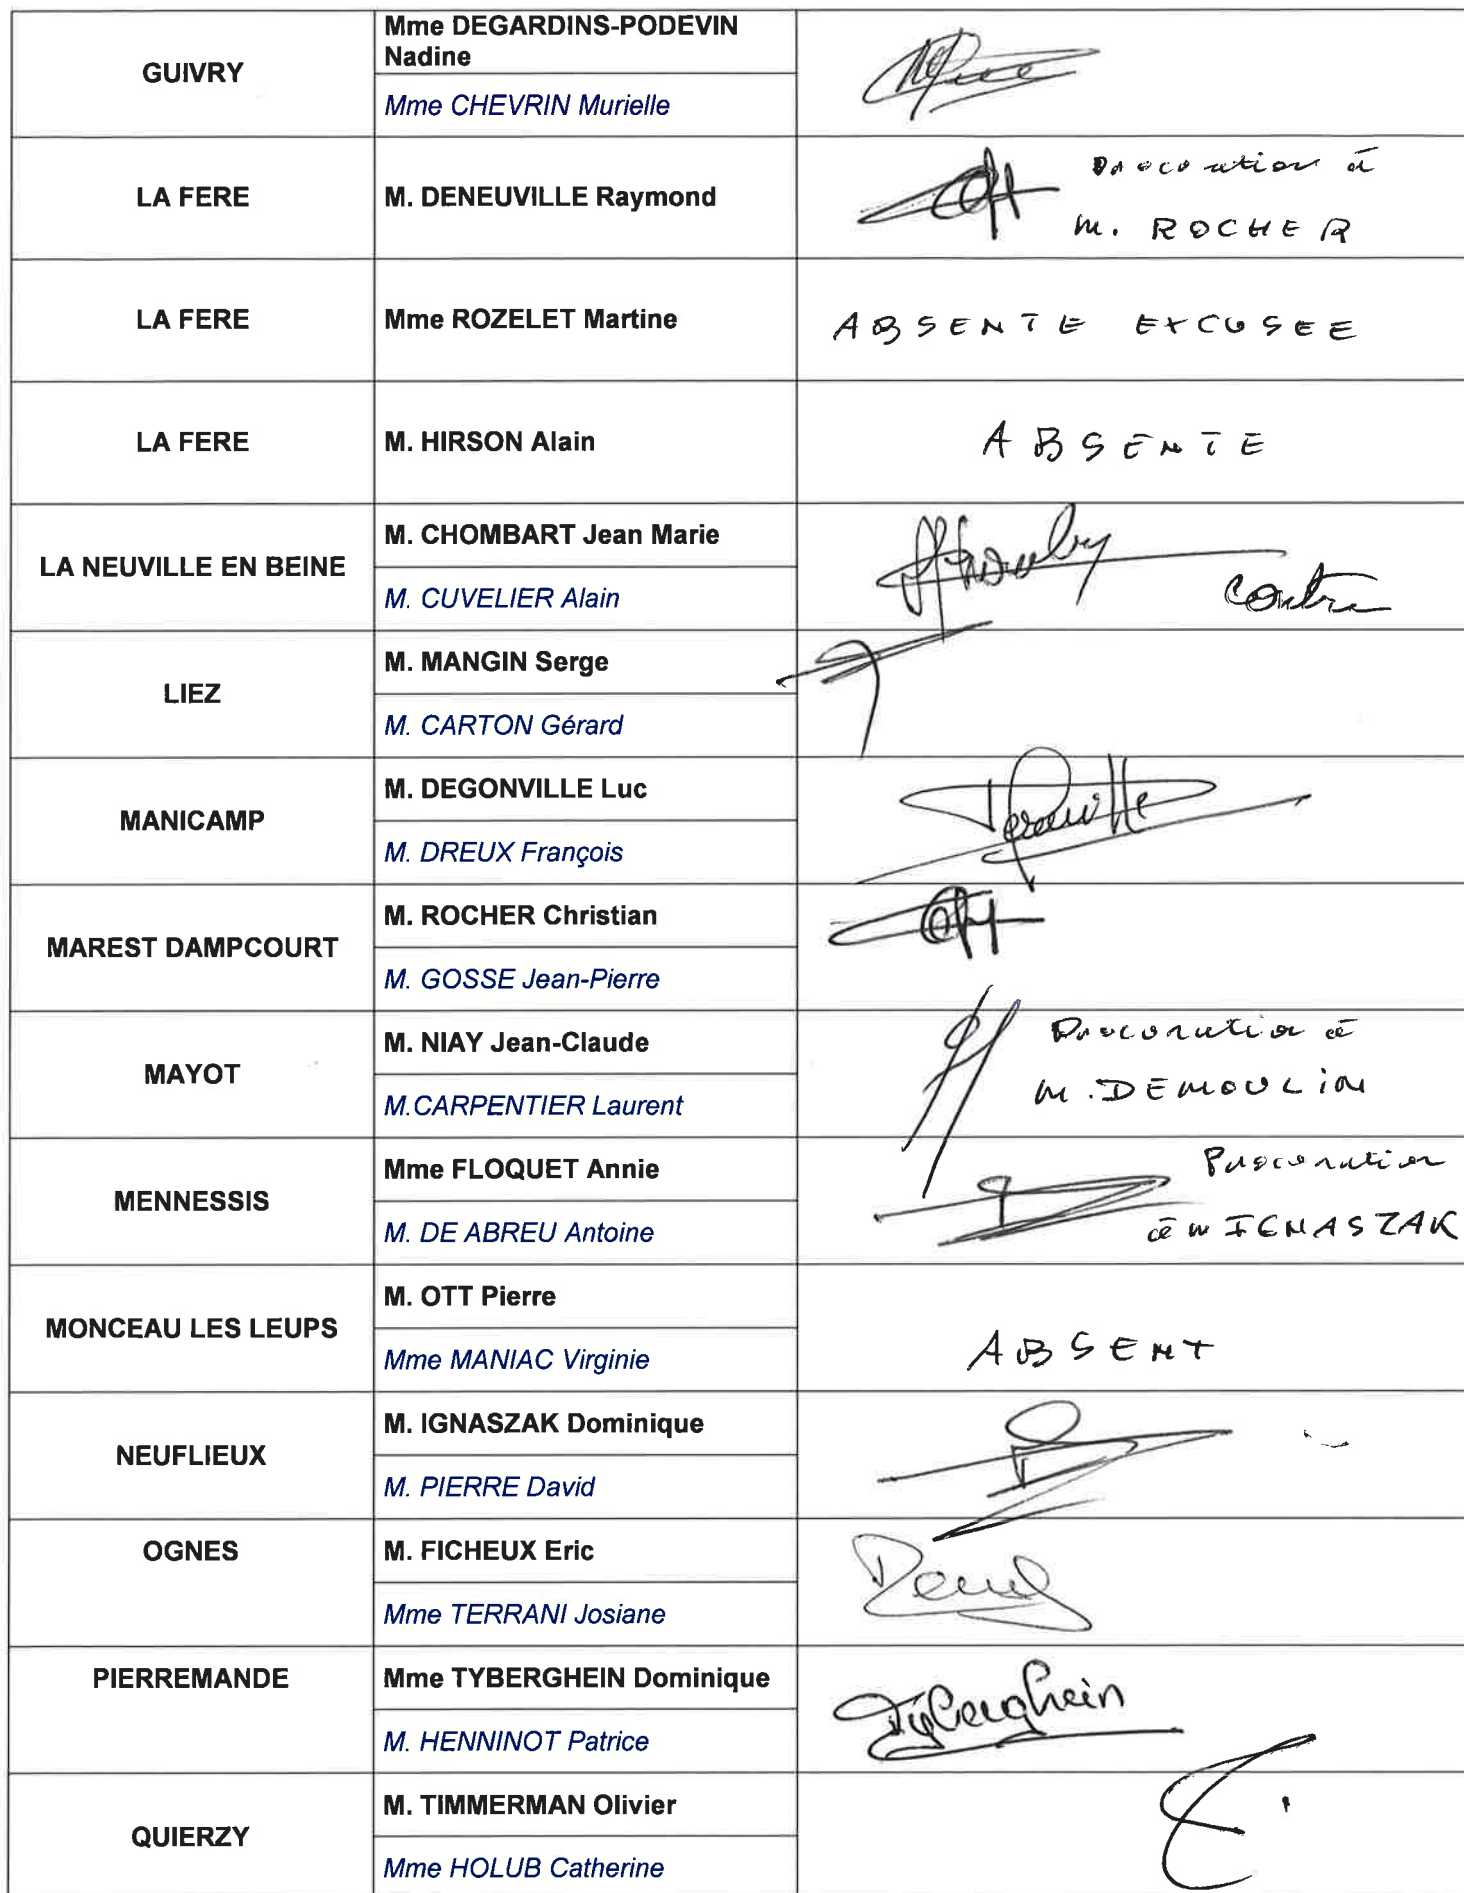 GUIVRY
Mme DEGARDINS-PODEVIN
Nadine
Mme CHEVRIN Murielle
LA FERE
M. DENEUVILLE Raymond
Procuration à
M. ROCHER
LA FERE
Mme ROZELET Martine
ABSENTE EXCUSEE
LA FERE
M. HIRSON Alain
ABSENTE
LA NEUVILLE EN BEINE
M. CHOMBART Jean Marie
M. CUVELIER Alain
contre
LIEZ
M. MANGIN Serge
M. CARTON Gérard
MANICAMP
M. DEGONVILLE Luc
M. DREUX François
MAREST DAMPCOURT
M. ROCHER Christian
M. GOSSE Jean-Pierre
MAYOT
M. NIAY Jean-Claude
M.CARPENTIER Laurent
Procuration à
M. DEMOULIN
MENNESSIS
Mme FLOQUET Annie
M. DE ABREU Antoine
Procuration
à M IGNASZAK
MONCEAU LES LEUPS
M. OTT Pierre
Mme MANIAC Virginie
ABSENT
NEUFLIEUX
M. IGNASZAK Dominique
M. PIERRE David
OGNES
M. FICHEUX Eric
Mme TERRANI Josiane
PIERREMANDE
Mme TYBERGHEIN Dominique
M. HENNINOT Patrice
Tyberghein
QUIERZY
M. TIMMERMAN Olivier
Mme HOLUB Catherine